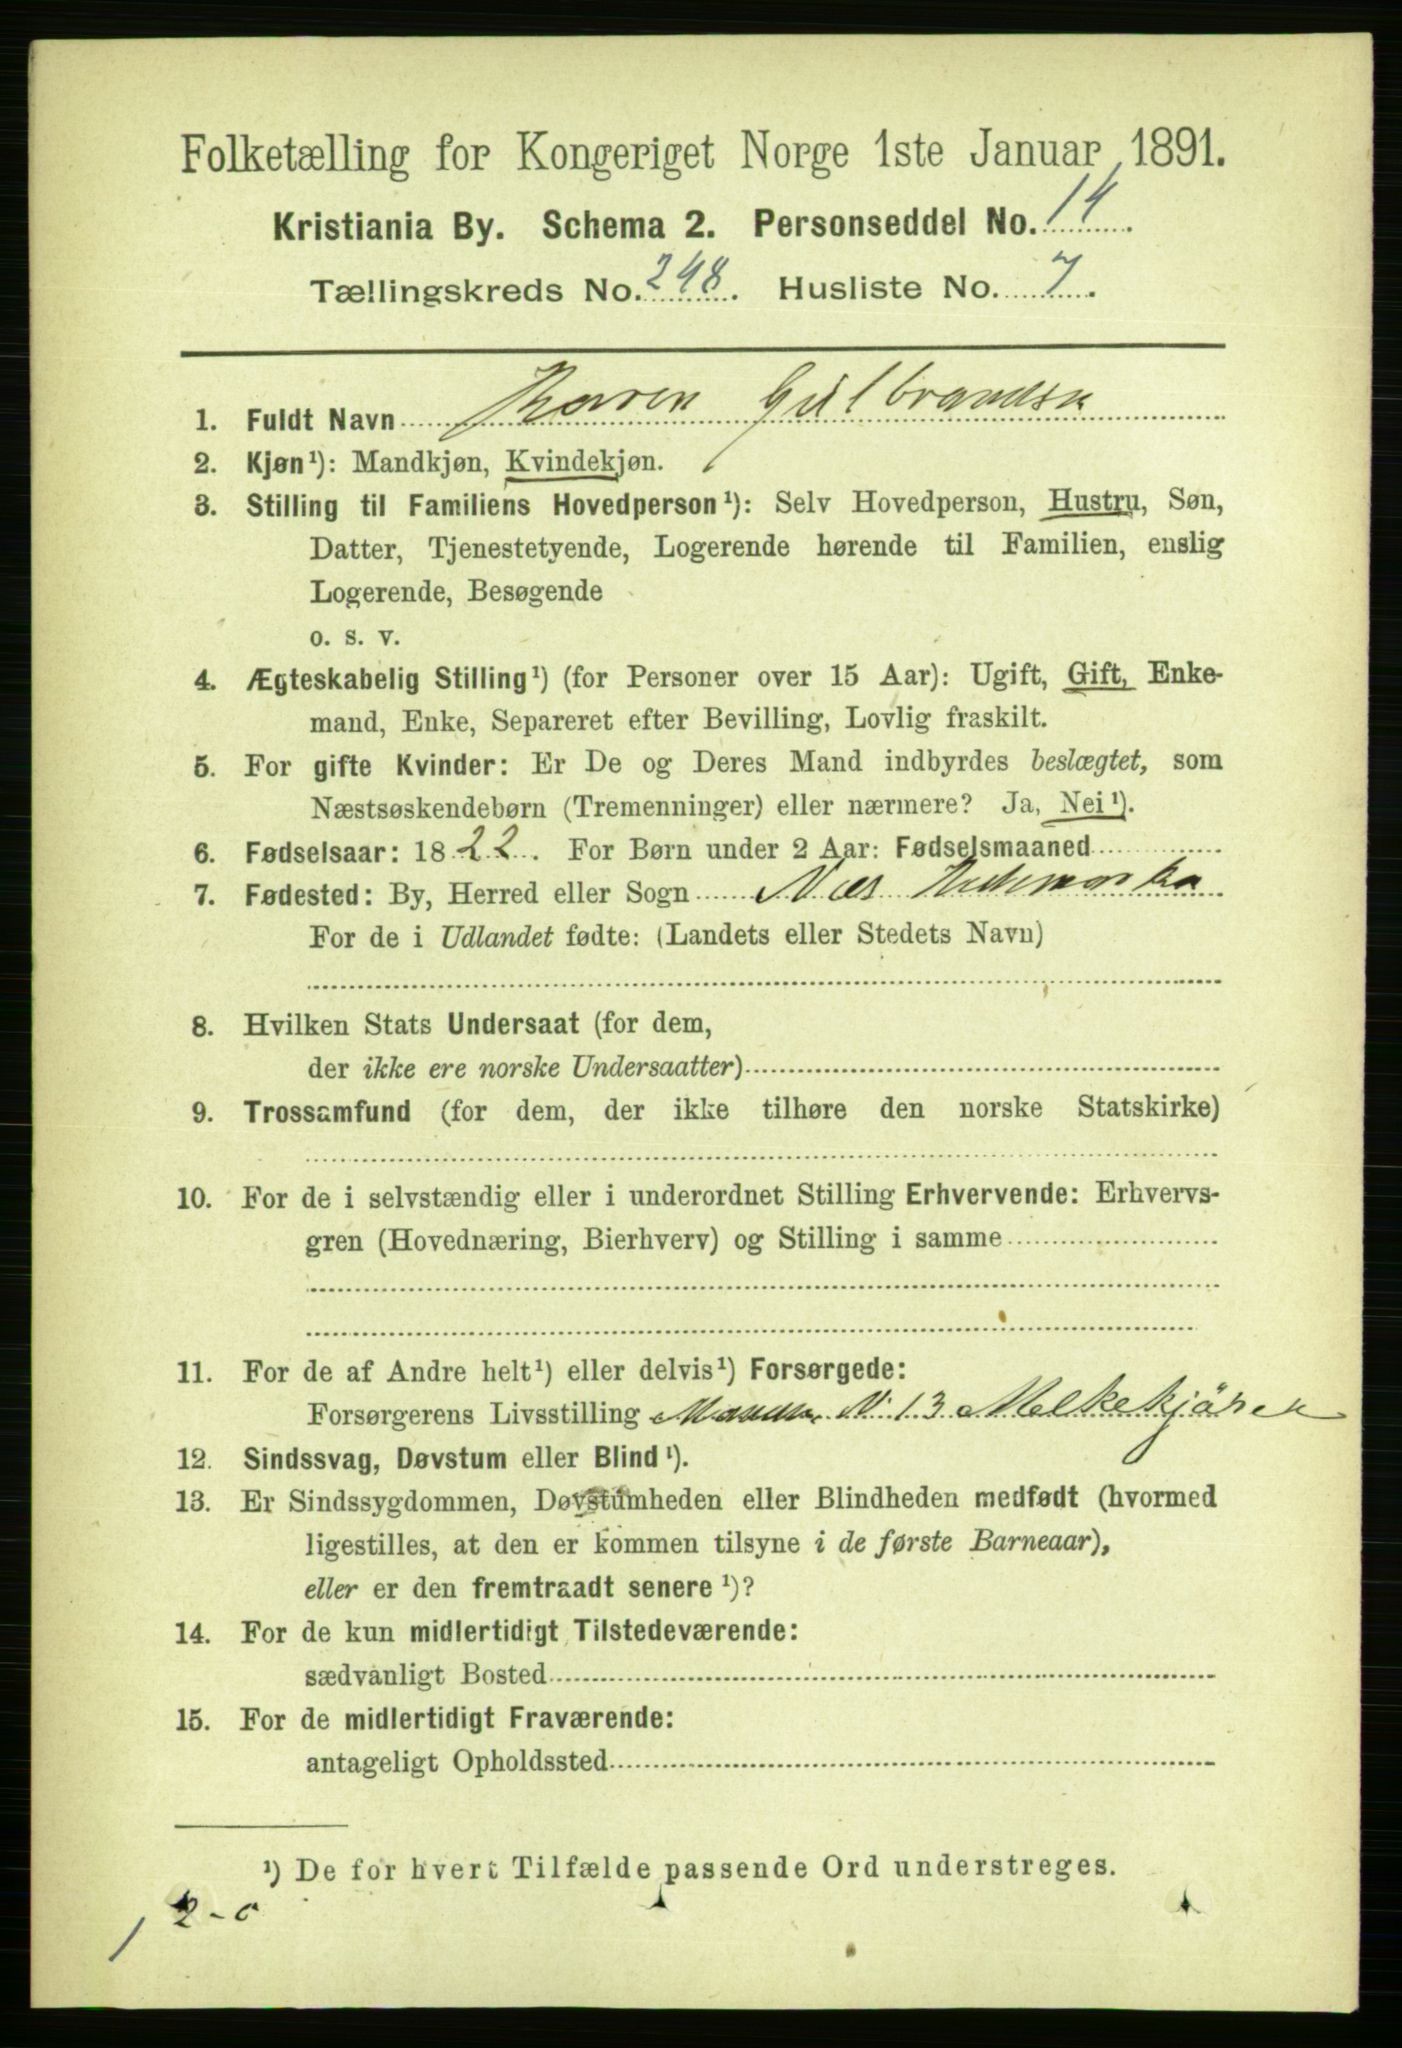 Folketælling for Kongeriget Norge 1ste Januar 1891.
Kristiania By. Schema 2. Personseddel No. 14.
Tællingskreds No. 248. Husliste No. 7.
1. Fuldt Navn Karen Gulbrandsen
2. Kjøn¹): Mandkjøn, Kvindekjøn.
3. Stilling til Familiens Hovedperson¹): Selv Hovedperson, Hustru, Søn,
Datter, Tjenestetyende, Logerende hørende til Familien, enslig
Logerende, Besøgende
o. s. v.
4. Ægteskabelig Stilling¹) (for Personer over 15 Aar): Ugift, Gift, Enke-
mand, Enke, Separeret efter Bevilling, Lovlig fraskilt.
5. For gifte Kvinder: Er De og Deres Mand indbyrdes beslægtet, som
Næstsøskendebørn (Tremenninger) eller nærmere? Ja, Nei¹).
6. Fødselsaar: 1822. For Børn under 2 Aar: Fødselsmaaned
7. Fødested: By, Herred eller Sogn Næs Hedemarken
For de i Udlandet fødte: (Landets eller Stedets Navn)
8. Hvilken Stats Undersaat (for dem,
der ikke ere norske Undersaatter)
9. Trossamfund (for dem, der ikke tilhøre den norske Statskirke)
10. For de i selvstændig eller i underordnet Stilling Erhvervende: Erhvervs-
gren (Hovednæring, Bierhverv) og Stilling i samme
11. For de af Andre helt¹) eller delvis¹) Forsørgede:
Forsørgerens Livsstilling Manden N. 13 Melkekjörer
12. Sindssvag, Døvstum eller Blind¹).
13. Er Sindssygdommen, Døvstumheden eller Blindheden medfødt (hvormed
ligestilles, at den er kommen tilsyne i de første Barneaar),
eller er den fremtraadt senere¹)?
14. For de kun midlertidigt Tilstedeværende:
sædvanligt Bosted
15. For de midlertidigt Fraværende:
antageligt Opholdssted
¹) De for hvert Tilfælde passende Ord understreges.
2-0
/